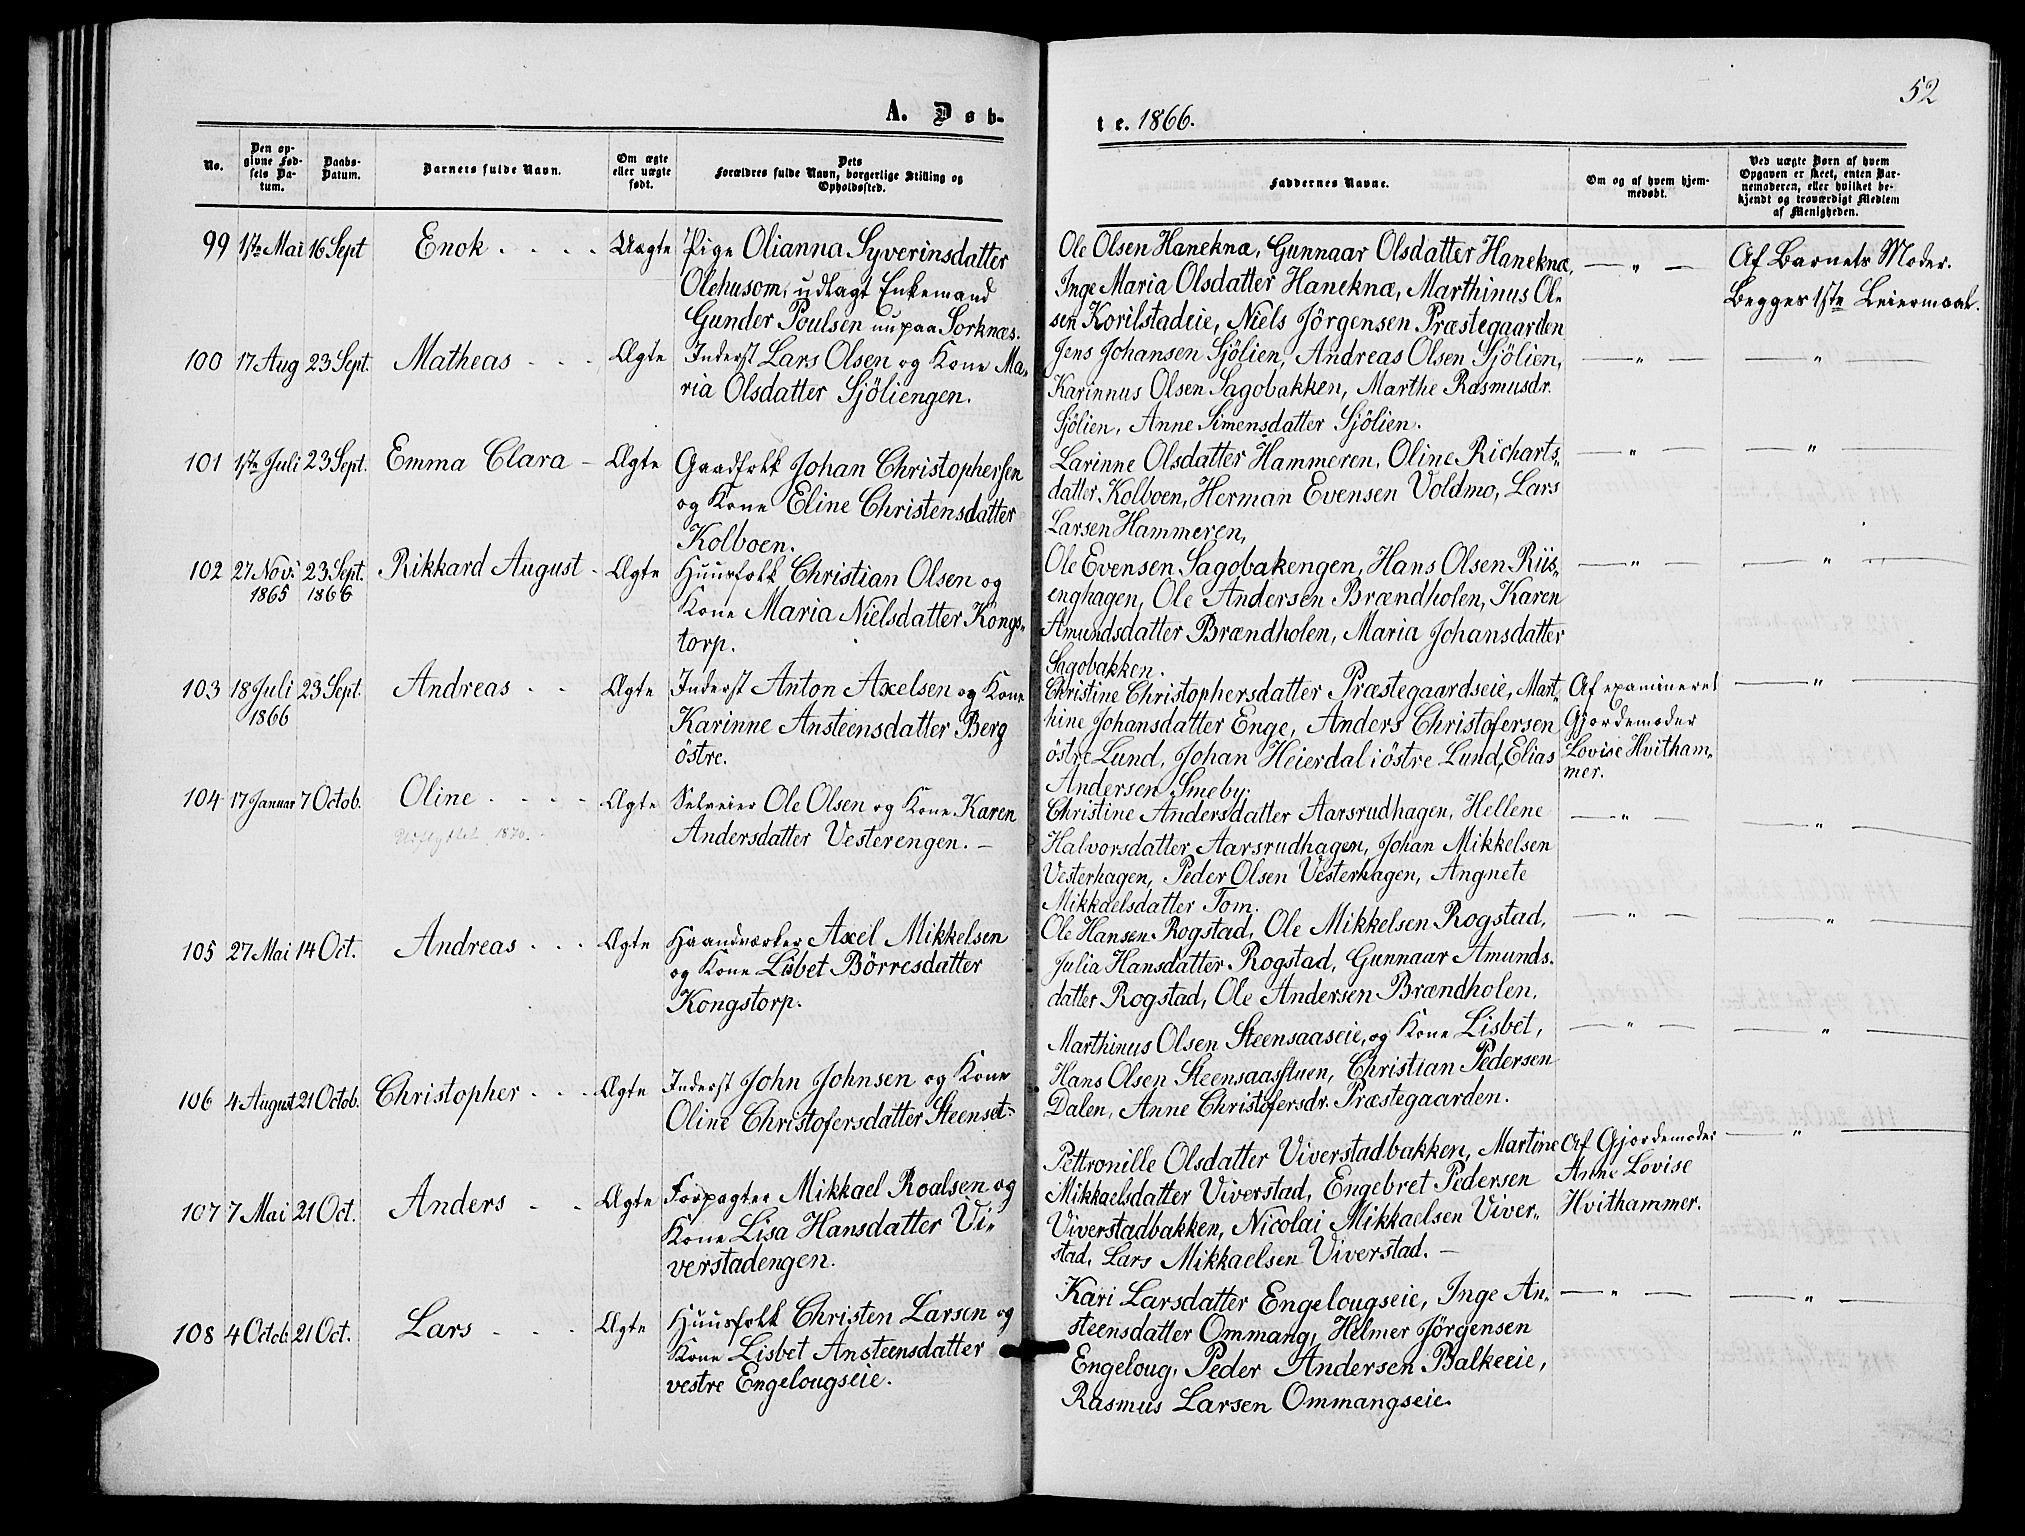 52
A. Døb-
te. 1866.
No.
Den op-
givne Fød-
sels Da-
tum.
Daabs-
Datum.
Barnets fulde Navn.
Om ægte
eller uægte
født.
Dets
Forældres fulde Navn, borgerlige Stilling og
Opholdssted.
Faddernes Navne.
Om og af hvem hjem-
medøbt.
Ved uægte Børn af hvem
Opgaven er skeet, enten Bar-
nemoderen, eller hvilket be-
kjendt og troværdigt Medlem
af Menigheden.
99 1ste Mai 16 Sept Enok Uægte Pige Olianna Syverinsdatter
Olehusom, udlagt Enkemand
Gunder Poulsen nu paa Sorknæs.
Ole Olsen Haneknæ, Gunnaar Olsdatter Haneknæ,
Inge Maria Olsdatter Haneknæ, Marthinus Ol-
sen Korilstadeie, Niels Jörgensen Præstegaarden
— " —
Af Barnets Moder.
Begges 1ste Leiermaal.
100 17 Aug 23 Sept. Matheas Ægte Inderst Lars Olsen og Kone Ma-
ria Olsdatter Sjöliengen.
Jens Johansen Sjölien, Andreas Olsen Sjölien,
Karinnus Olsen Sagobakken, Marthe Rasmusdr.
Sjölien, Anne Simensdatter Sjölien.
— " —
— " —
101 1ste Juli 23 Sept. Emma Clara - Ægte Gaadfolk Johan Christophersen
og Kone Eline Christensdatter
Kolboen.
Larinne Olsdatter Hammeren, Oline Richarts-
datter Kolboen, Herman Evensen Voldmo, Lars
Larsen Hammeren,
— " —
— " —
102 27 Nov: 23 Sept. Rikkard August - Ægte Huusfolk Christian Olsen og
1865 1866
Kone Maria Nielsdatter Kongs-
torp.
Ole Evensen Sagobakengen, Hans Olsen Riis-
enghagen, Ole Andersen Brændholen, Karen
Amundsdatter Brændholen, Maria Johansdatter
Sagobakken.
— " —
— " —
103 18 Juli 23 Sept. Andreas Ægte Inderst Anton Axelsen og Kone
1866
Karinne Ansteensdatter Berg
östre.
Christine Christophersdatter Præstegaardseie, Mart-
hine Johansdatter Enge, Anders Christofersen
östre Lund, Johan Heierdal i östre Lund, Elias
Andersen Smeby.
Af examineret
Gjordemoder
Lovise Hvitham-
mer.
— " —
104 17 Januar 7 Octob. Oline Ægte Selveier Ole Olsen og Kone Karen
Udflyttet 1870.
Andersdatter Vesterengen. —
Christine Andersdatter Aarsrudhagen, Hellene
Halvorsdatter Aarsrudhagen, Johan Mikkelsen
Vesterhagen, Peder Olsen Vesterhagen, Angnete
Mikkaelsdatter Tom.
— " —
— " —
105 27 Mai 14 Oct. Andreas Ægte Haandværker Axel Mikkelsen
og Kone Lisbet Börresdatter
Kongstorp.
Ole Hansen Rogstad, Ole Mikkelsen Rogstad,
Julia Hansdatter Rogstad, Gunnaar Amunds-
datter Rogstad, Ole Andersen Brændholen.
— " —
— " —
106 4 August 21 Octob. Christopher Ægte Inderst John Johnsen og Kone
Oline Christofersdatter Steenset-
Marthinus Olsen Steensaaseie, og Kone Lisbet,
Hans Olsen Steensaasstuen, Christian Pedersen
Dalen, Anne Christofersdr. Præstegaarden.
— " —
— " —
107 7 Mai 21 Oct. Anders Ægte Forpagter Mikkael Roalsen og
Kone Lisa Hansdatter Vi-
verstadengen.
Pettronille Olsdatter Viverstadbakken, Martine
Mikkaelsdatter Viverstad, Engebret Pedersen
Viverstadbakken, Nicolai Mikkaelsen Viver-
stad, Lars Mikkaelsen Viverstad. —
Af Gjordemoder
Anne Lovise
Hvithammer.
— " —
108 4 Octob 21 Oct. Lars Ægte Huusfolk Christen Larsen og
Kone Lisbet Ansteensdatter
vestre Engelougseie.
Kari Larsdatter Engelougseie, Inge An-
steensdatter Ommang, Helmer Jörgensen
Engeloug, Peder Andersen Balkeeie,
Rasmus Larsen Ommangseie.
— " —
— " —